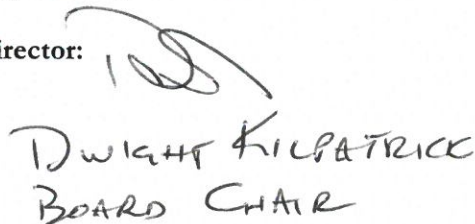 irector:
DWIGHT KILPATRICK
BOARD CHAIR